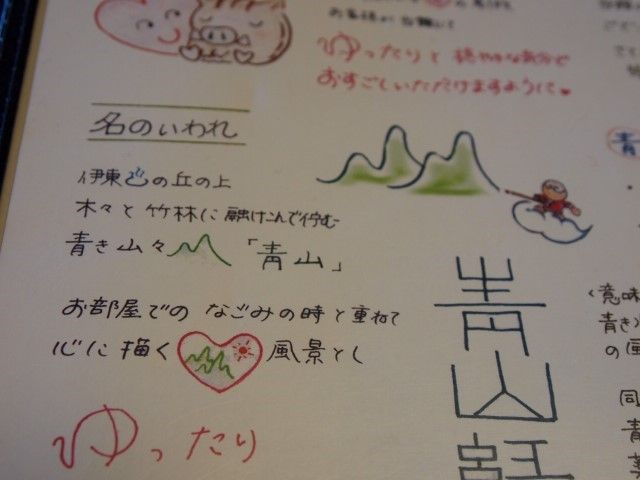 ゆったりと 穏やかな気分で
おすごしいただけますように
名のいわれ
伊東の丘の上
木々と竹林に融けこんで佇む
青き山々
「青山」
お部屋での なごみの時と重ねて
心に描く
風景とし
ゆったり
青山
青
意味
青き
の風
同
青